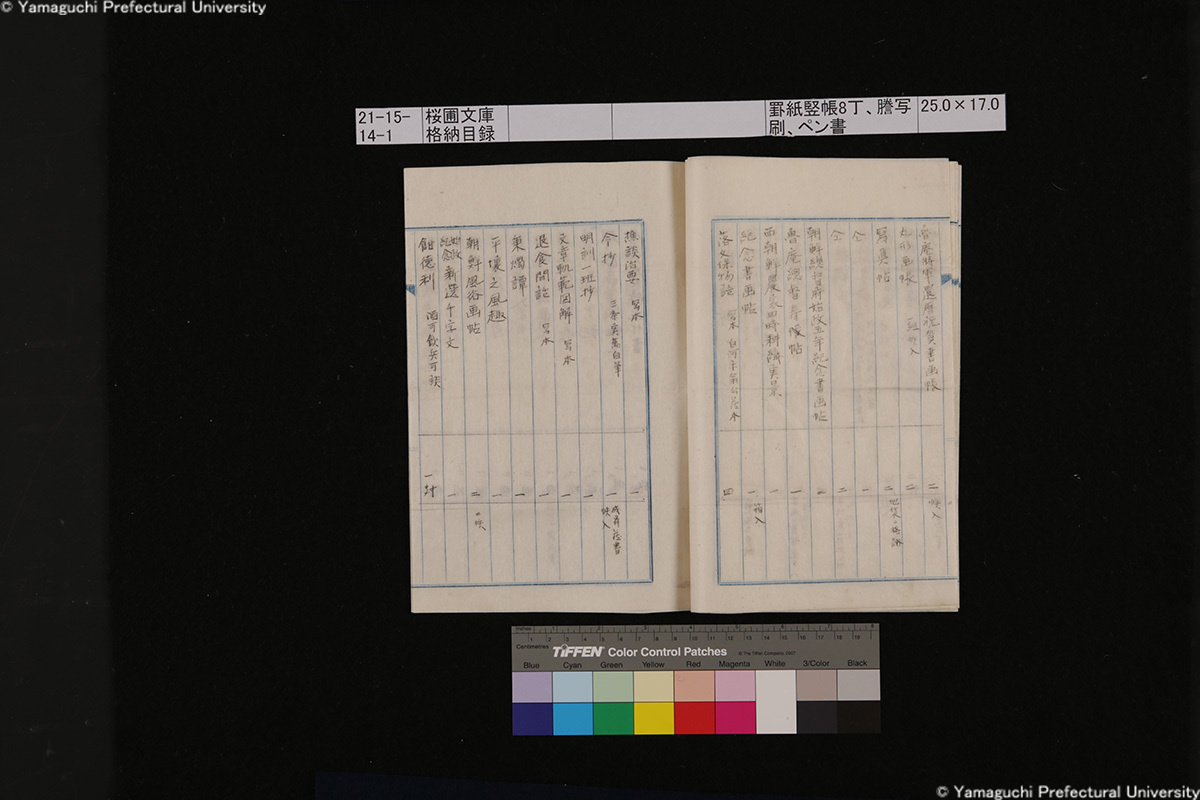 © Yamaguchi Prefectural University
21-15-14-1
桜圃文庫格納目録
罫紙竪帳8丁、謄写刷、ペン書
25.0×17.0
魯庵将軍還暦祝賀書画帳 二 帙入
画帳 二
写真帖 二
仝 一
仝 二
朝鮮総督府始政五年紀念書画帖 二
魯庵総督 帖 一
西朝鮮 四時耕 実景 一
紀念書画帖 一 箱入
落 保物語 写本 四
樵談治要 写本 一
今抄 三 実萬自筆 一 蔵書 帙入
明訓一班抄 一
文章軌範図解 写本 一
退食間話 写本 一
秉燭譚 一
平壌之風趣 一
朝鮮風俗画帖 二 一帙
始政紀念 新選千字文 一
銀徳利 酒可飲兵可 一対
inches
Centimetres
TIFFEN Color Control Patches
© The Tiffen Company, 2007
Blue Cyan Green Yellow Red Magenta White 3/Color Black
© Yamaguchi Prefectural University